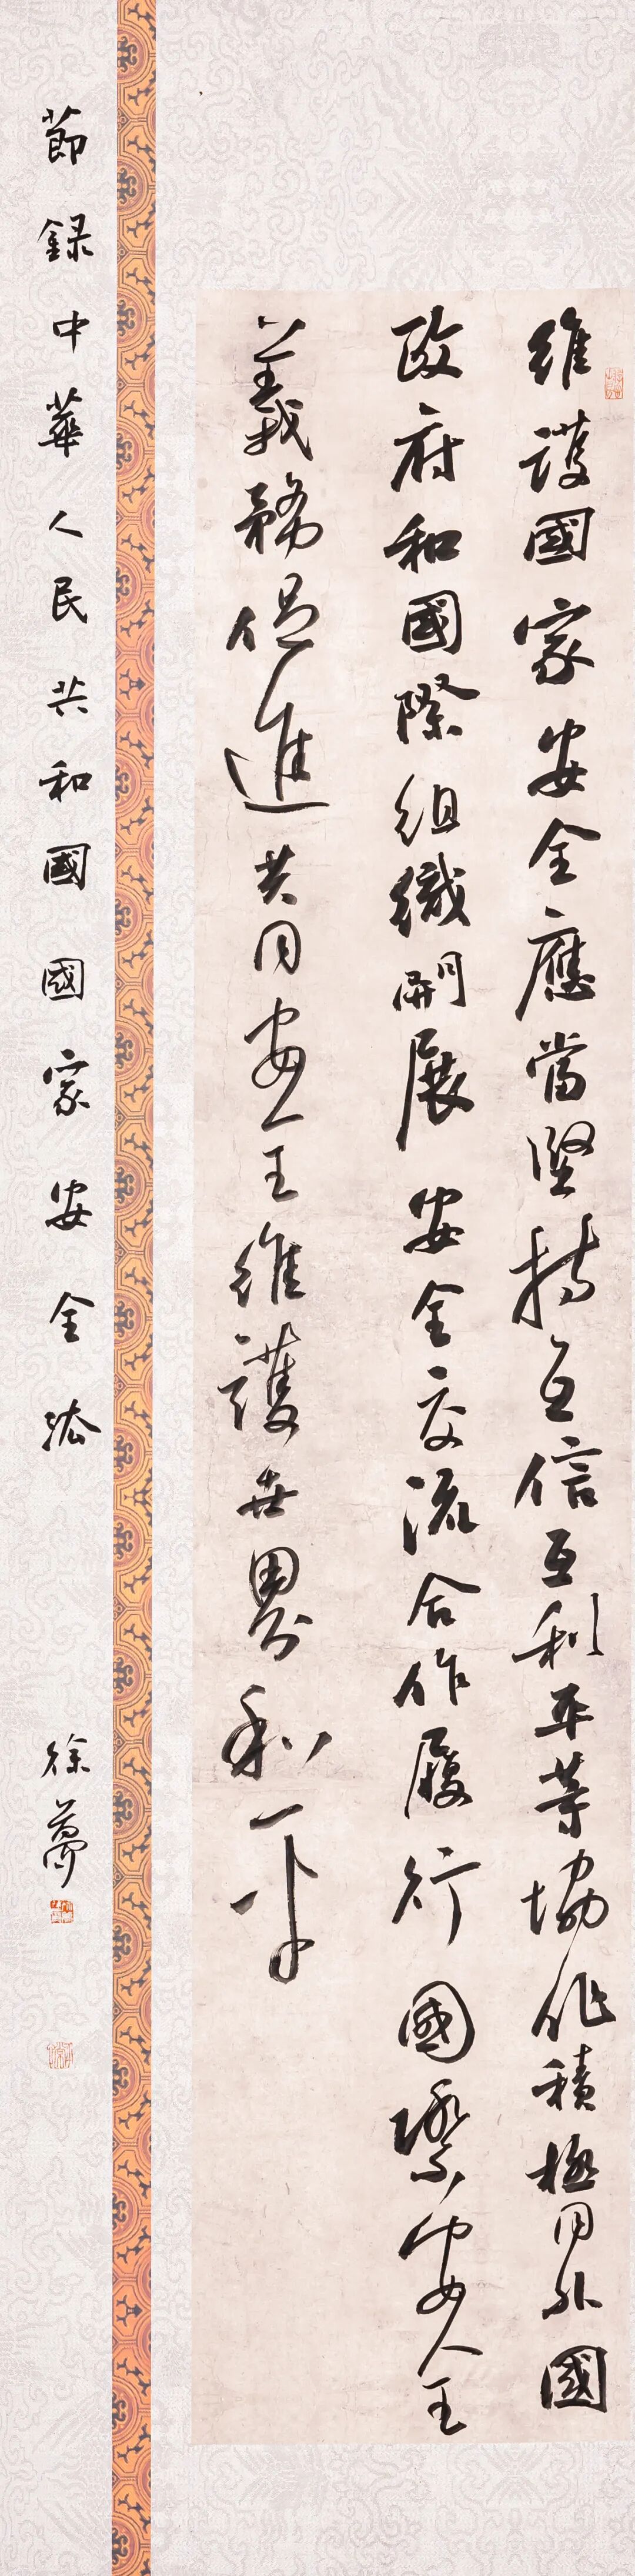 維護國家安全應當堅持互信互利平等協作積極同外國
政府和國際組織開展安全交流合作履行國際安全
義務促進共同安全維護世界和平
節録中華人民共和國國家安全法
徐夢